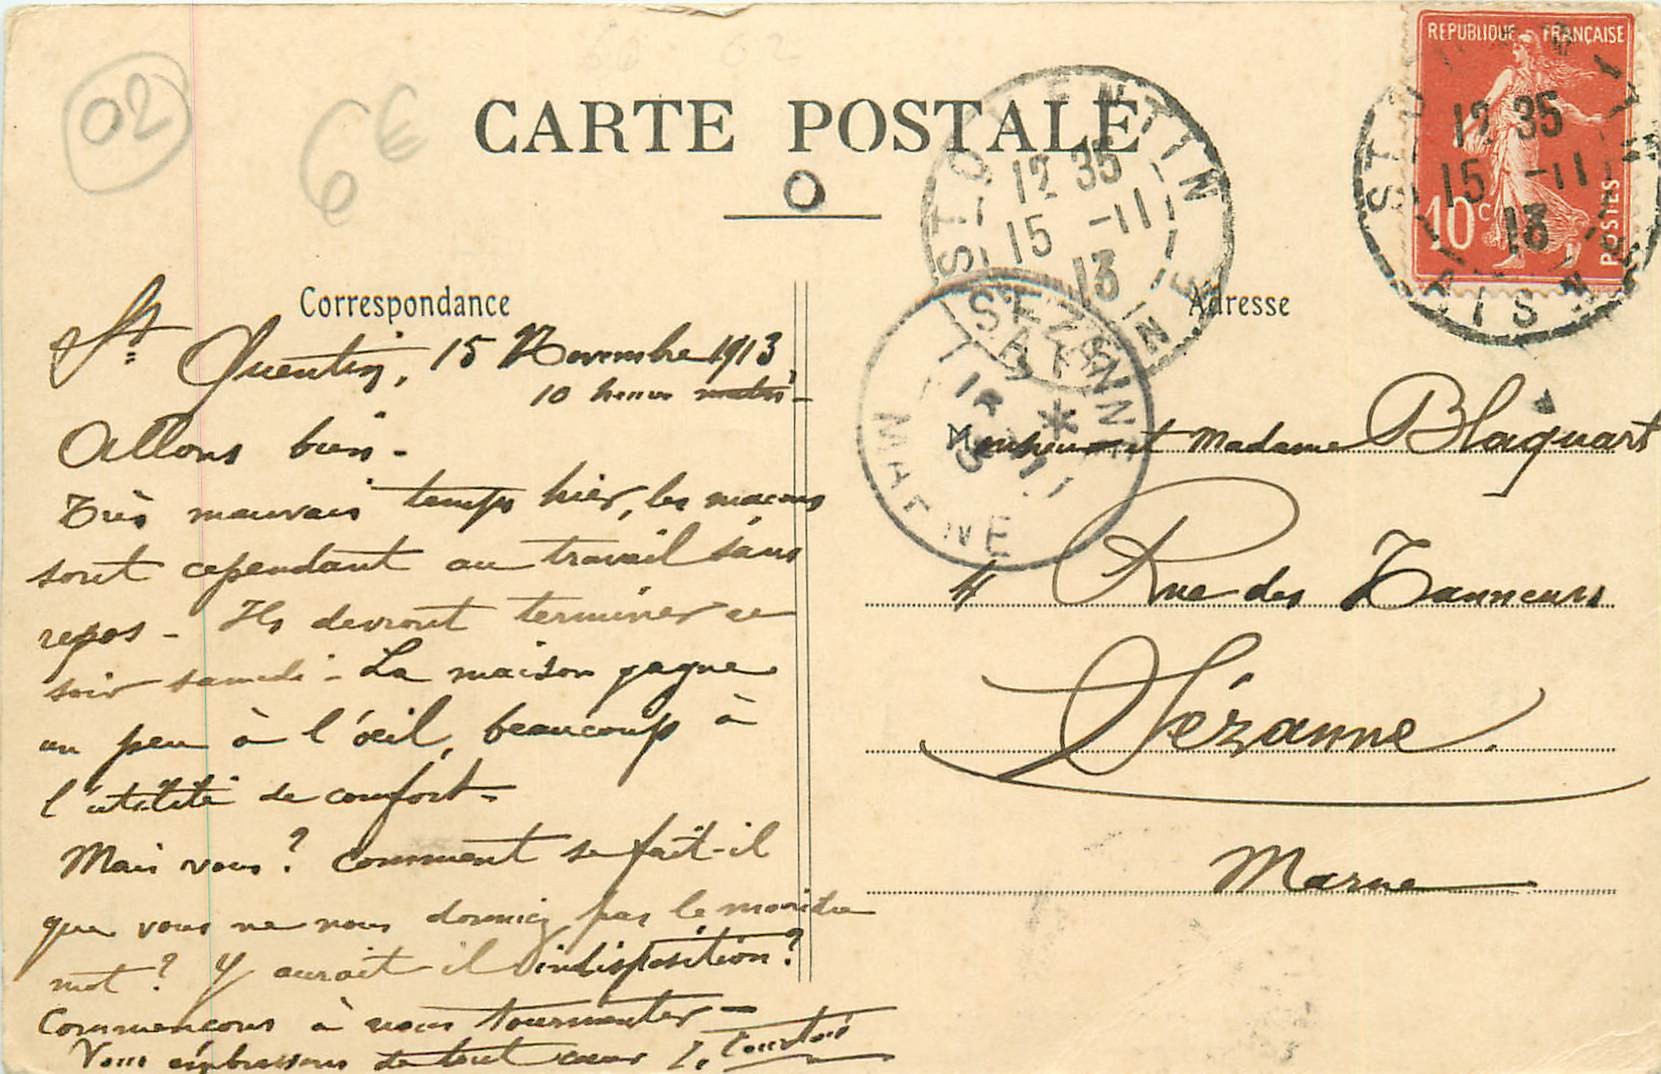 02
6€
CARTE POSTALE
REPUBLIQUE FRANÇAISE
10c
POSTES
ST QUENTIN
12 35
15 -11
13
AISNE
ST QUENTIN
12 35
15 -11
13
AISNE
SEZANNE
MARNE
Correspondance
St Quentin, 15 Novembre 1913,
10 heures matin -
Allons bien -
Très mauvais temps hier, les maçons
sont cependant au travail sans
repos - Ils devront terminer ce
soir samedi - La maison gagne
un peu à l'œil, beaucoup à
l'utilité de confort -
Mais vous ? Comment se fait-il
que vous ne nous donniez pas le moindre
mot ? Y aurait il indisposition ?
Commençons à nous tourmenter -
Vous embrassons de tout cœur
Adresse
Monsieur et Madame Blaquart
4 Rue des Tanneurs
Sézanne
Marne